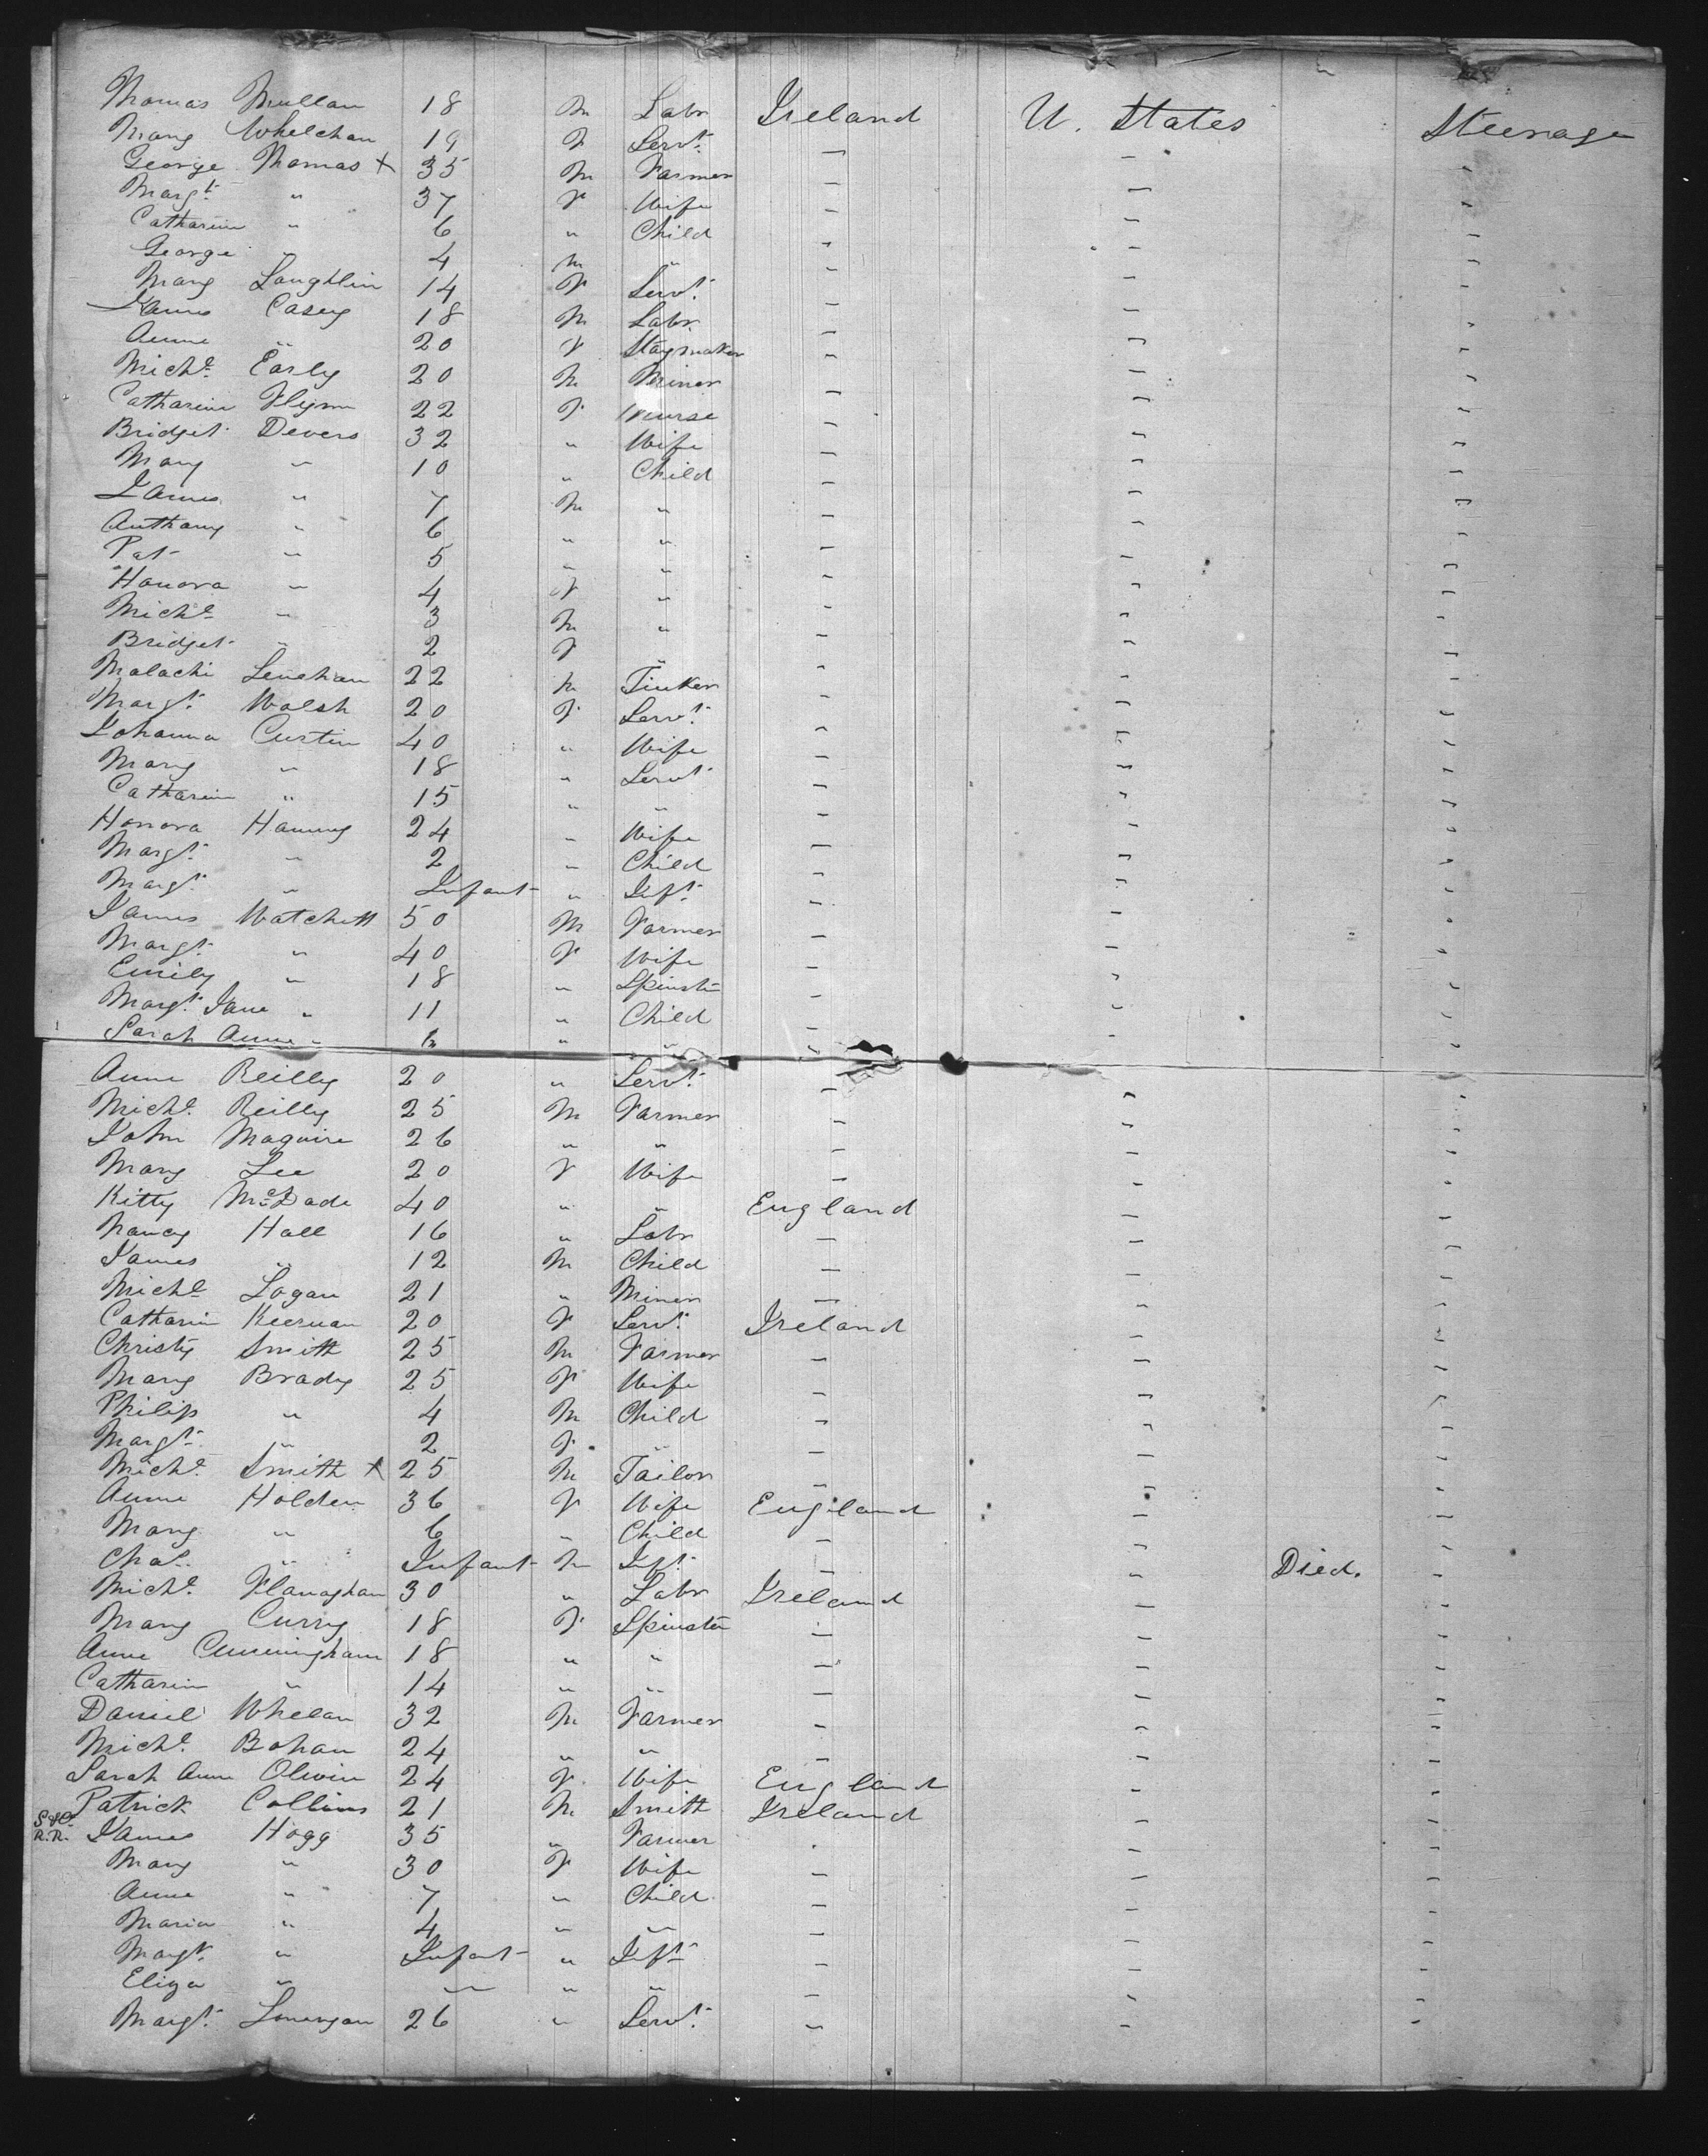 Thomas Mullan 18 M Labr Ireland U. States Steerage
Mary Whelehan 19 F Servt. — — —
George Thomas + 35 M Farmer — — —
Margt. " 37 F Wife — — —
Catharine " 6 " Child — — —
George " 4 M " — — —
Mary Laughlin 14 F Servt. — — —
James Casey 18 M Labr. — — —
Anne " 20 F Staymaker — — —
Michl. Early 20 M Miner — — —
Catharine Flynn 22 F Nurse — — —
Bridget Devers 32 " Wife — — —
Mary " 10 " Child — — —
James " 7 M " — — —
Anthony " 6 " " — — —
Pat " 5 " " — — —
Honora " 4 F " — — —
Michl. " 3 M " — — —
Bridget " 2 F " — — —
Malachi Lenehan 22 M Tinker — — —
Margt. Walsh 20 F Servt. — — —
Johanna Curtin 40 " Wife — — —
Mary " 18 " Servt. — — —
Catharine " 15 " " — — —
Honora 24 " Wife — — —
Margt. " 2 " Child — — —
Margt. " Infant " Inft. — — —
James Watchett 50 M Farmer — — —
Margt. " 40 F Wife — — —
Emily " 18 " Spinster — — —
Margt. Jane " 11 " Child — — —
Sarah Anne " " " — — —
Anne Reilly 20 " Servt. — — —
Michl. Reilly 25 M Farmer — — —
John Maguire 26 " " — — —
Mary Lee 20 F Wife — — —
Kitty McDade 40 " " England — —
Nancy Hall 16 " Labr — — —
James " 12 M Child — — —
Michl. Logan 21 " Miner — — —
Catharine Keernan 20 F Servt. Ireland — —
Christy Smith 25 M Farmer — — —
Mary Brady 25 F Wife — — —
Philip " 4 M Child — — —
Margt. " 2 F " — — —
Michl. Smith + 25 M Tailor — — —
Anne Holden 36 F Wife England — —
Mary " 6 " Child — — —
Chas. " Infant M Inft. — — Died. —
Michl. Flanaghan 30 " Labr Ireland — —
Mary Curry 18 F Spinster — — —
Anne Cunningham 18 " " — — —
Catharine " 14 " " — — —
Daniel Whelan 32 M Farmer — — —
Michl. Bohan 24 " " — — —
Sarah Anne Olwin 24 F Wife England — —
Patrick Collins 21 M Smith Ireland — —
R.R. James Hogg 35 " Farmer — — —
Mary " 30 F Wife — — —
Anne " 7 " Child — — —
Maria " 4 " " — — —
Margt. " Infant " Inft. — — —
Eliza " — " " — — —
Margt. Lonergan 26 " Servt. — — —